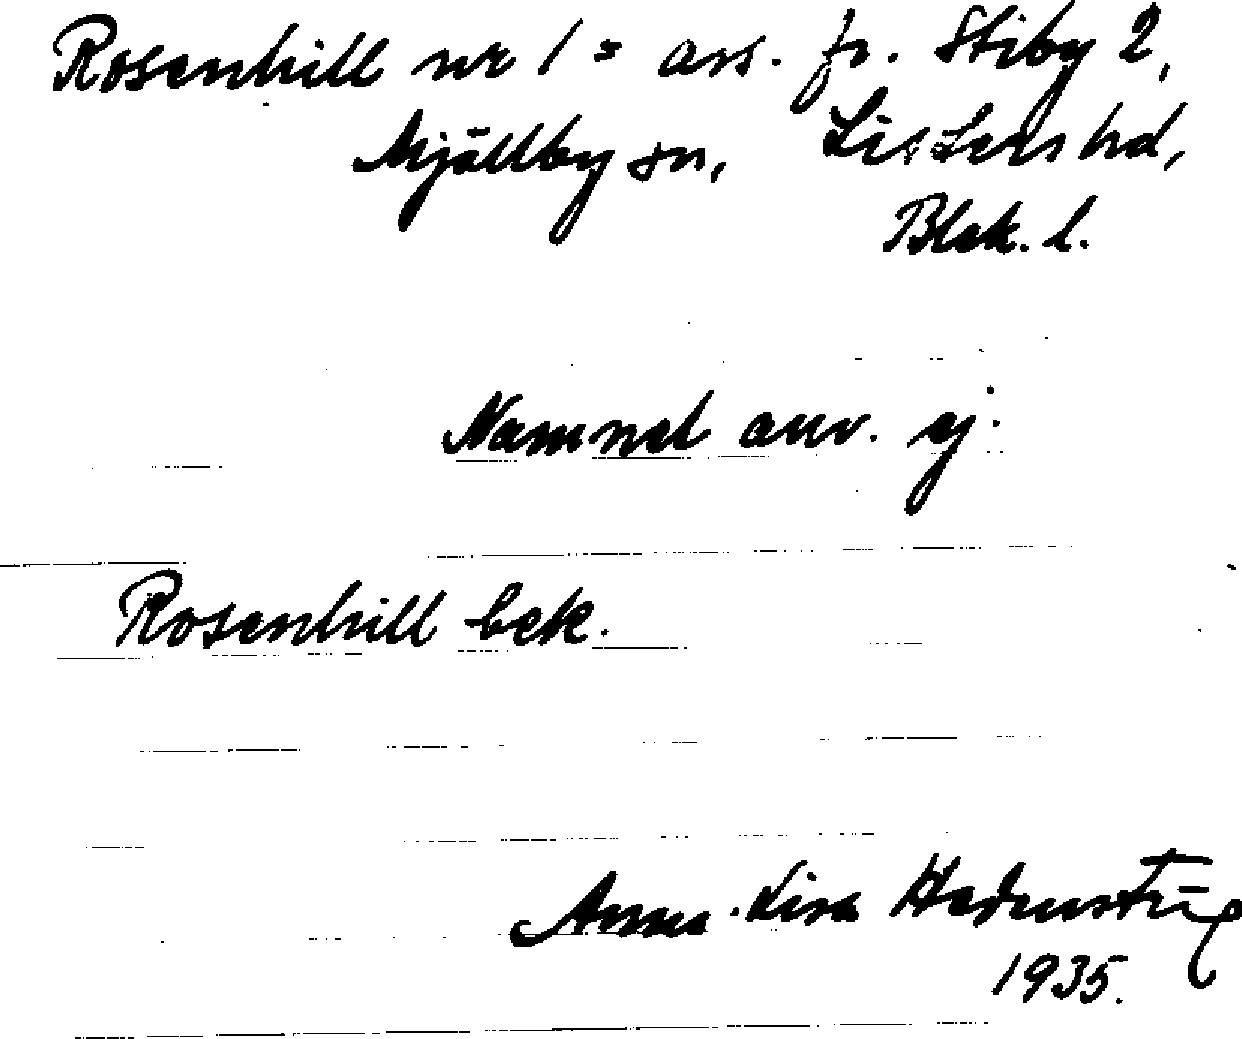 Rosenhill nr 1 = avs. fr. Stiby 2,
Mjällby sn, Listers hd,
Blek. l.
Namnet anv. ej.
Rosenhill bek.
Anna-Lisa
1935.